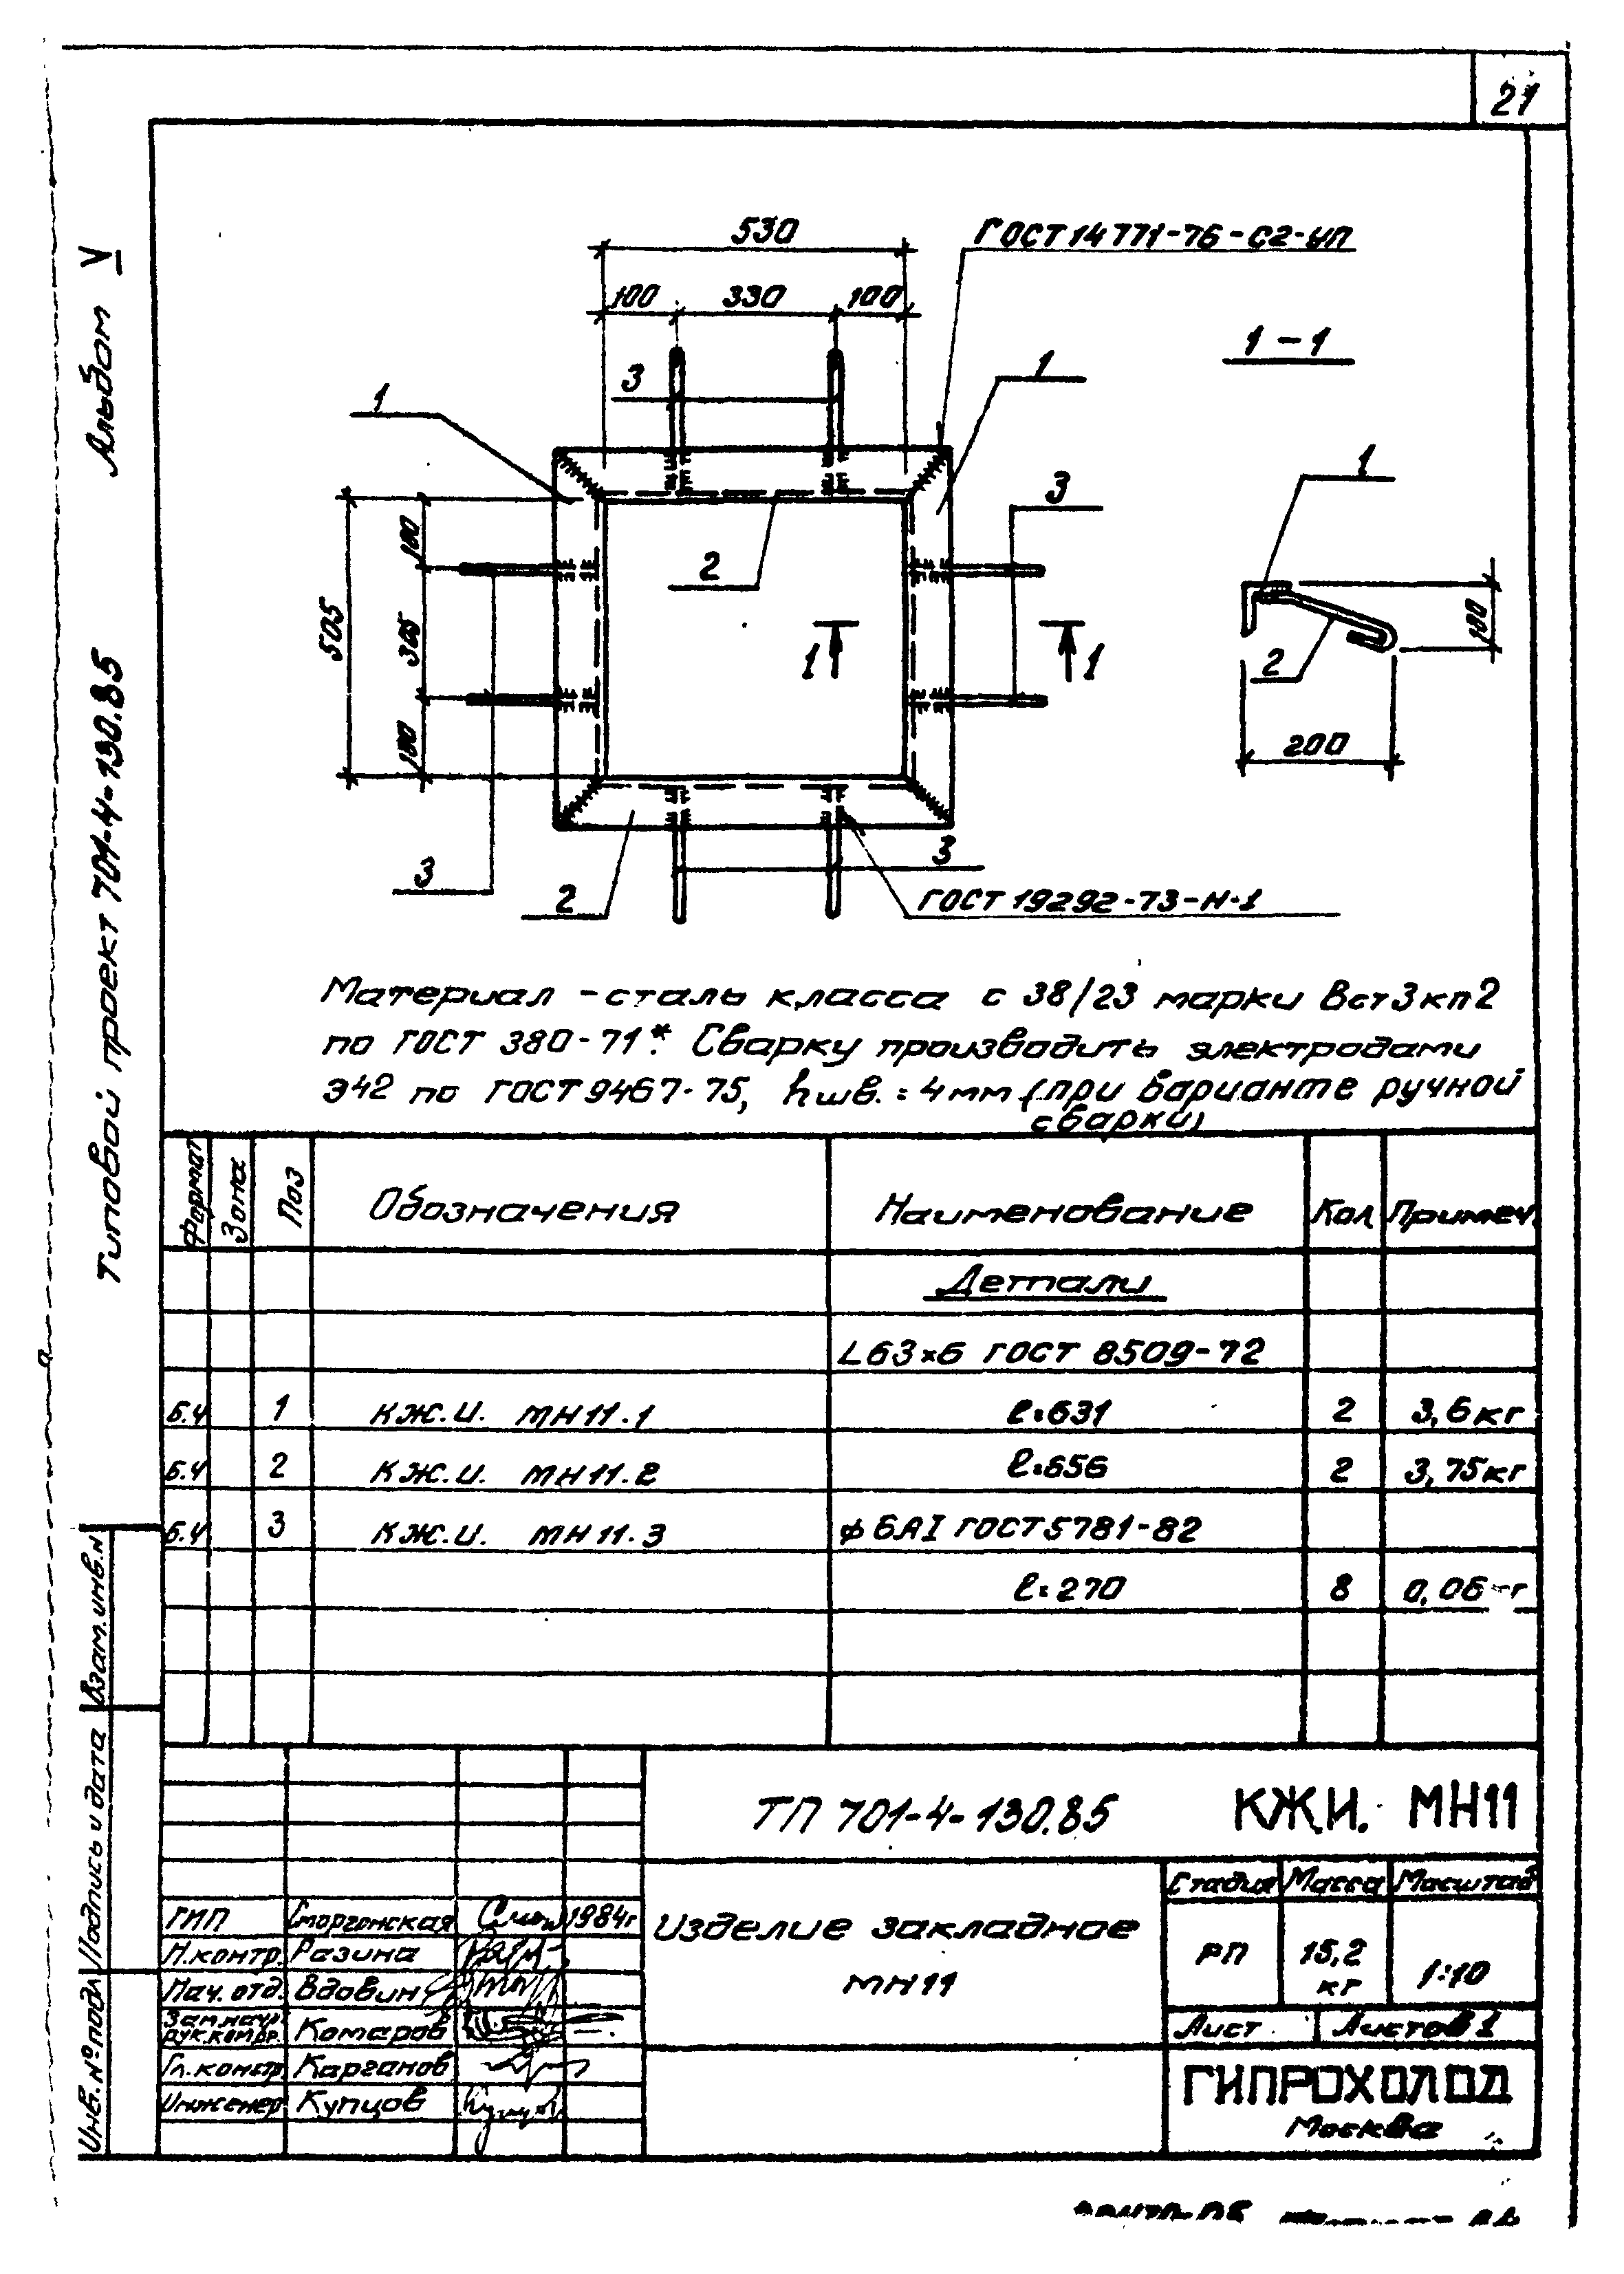 21
Альбом V
Типовой проект 701-4-130.85
530
ГОСТ 14771-76-С2-УП
100 330 100
1-1
3
1
1
1
3
2
100
505
305
100
1 1
100
2
200
3
2
3
ГОСТ 19292-73-Н-1
Материал - сталь класса С 38/23 марки Вст3кп2
по ГОСТ 380-71*. Сварку производить электродами
Э42 по ГОСТ 9467-75, hшв. = 4мм (при варианте ручной
сварки)
Формат Зона Поз Обозначения Наименование Кол Примеч.
Детали
L63×6 ГОСТ 8509-72
Б.Ч 1 КЖ.И. МН11.1 ℓ=631 2 3,6кг
Б.Ч 2 КЖ.И. МН11.2 ℓ=656 2 3,75кг
Б.Ч 3 КЖ.И. МН11.3 ф6АI ГОСТ 5781-82
ℓ=270 8 0,06
Взам.инв.н
Подпись и дата
Инв.№подл
ТП 701-4-130.85 КЖИ. МН11
Стадия Масса Масштаб
ГИП Сморгонская 1984г
Изделие закладное
МН11
РП 15,2 кг 1:10
Н.контр. Разина
Нач. отд. Вдовин
Зам.нач.
рук.контр. Комаров
Лист Листов 1
Гл.констр. Карганов
Инженер Купцов
ГИПРОХОЛОД
Москва